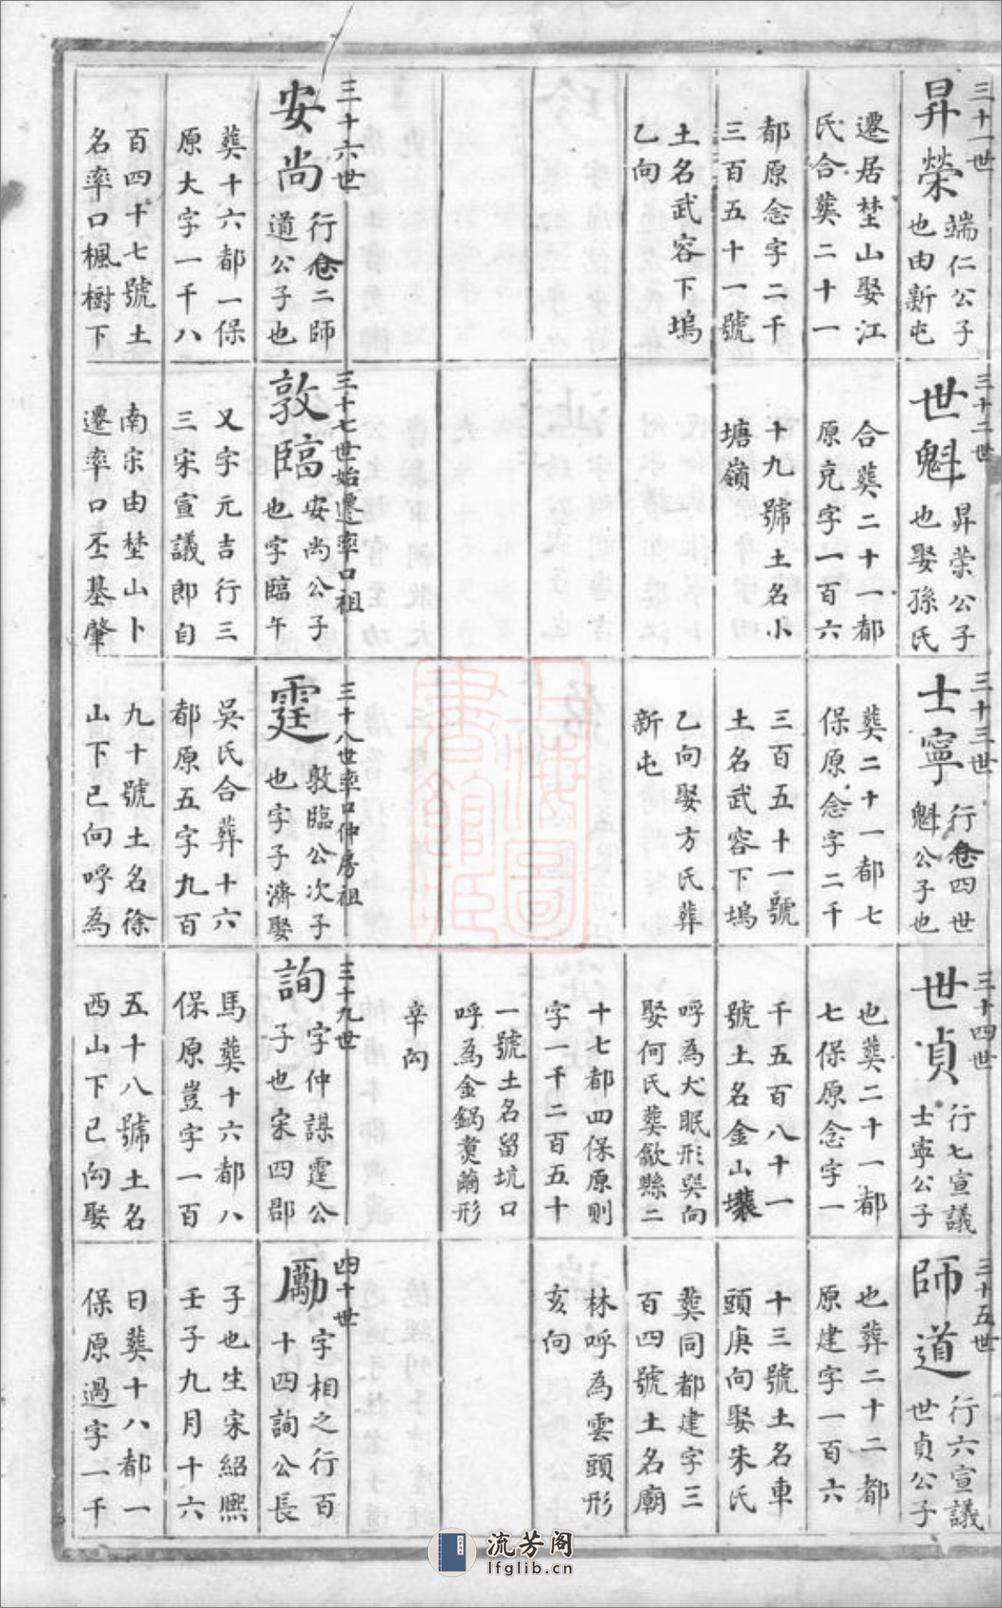 三十一世
昇榮
端仁公子
也由新屯
遷居埜山娶江
氏合葬二十一
都原念字二千
三百五十一號
土名武容下塢
乙向
三十二世
世魁
昇荣公子
也娶孫氏
合葬二十一都
原克字一百六
十九號土名小
塘嶺
三十三世
士寧
行叁四世
魁公子也
葬二十一都七
保原念字二千
三百五十一號
土名武容下塢
乙向娶方氏葬
新屯
三十四世
世貞
行七宣議
士寧公子
也葬二十一都
七保原念字一
千五百八十一
號土名金山壤
呼為犬眠形巽向
娶何氏葬歙縣二
十七都四保原則
字一千二百五十
一號土名留坑口
呼為金鍋煑繭形
辛向
三十五世
師道
行六宣議
世貞公子
也葬二十二都
原建字一百六
十三號土名車
頭庚向娶朱氏
葬同都建字三
百四號土名廟
林呼為雲頭形
亥向
三十六世
安尚
行叁二師
道公子也
葬十六都一保
原大字一千八
百四十七號土
名率口楓樹下
三十七世始遷率口祖
敦臨
安尚公子
也字臨午
又字元吉行三
三宋宣議郎自
南宗由埜山卜
遷率口丕基肇
三十八世率口仲房祖
霆
敦臨公次子
也字子濟娶
吳氏合葬十六
都原五字九百
九十號土名徐
山下巳向呼為
三十九世
詢
字仲謀霆公
子也宋四郡
馬葬十六都八
保原豈字一百
五十八號土名
西山下巳向娶
四十世
勵
字相之行百
十四詢公長
子也生宋紹熙
壬子九月十六
日葬十八都一
保原過字一千
流芳阁
lfglib.cn